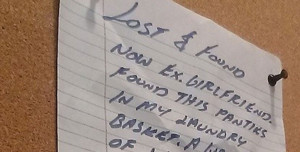 LOST & FOUND
NOW EX GIRLFRIEND.
FOUND THIS PANTIES
IN MY LAUNDRY
BASKET. A
OF